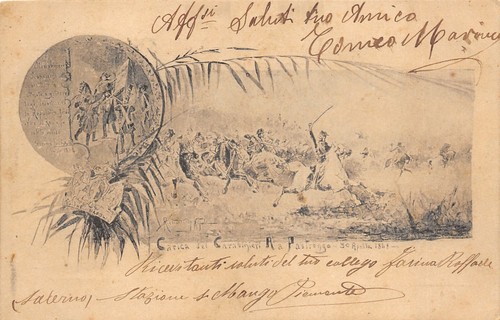 Aff.si Saluti tuo Amico
Carica dei Carabinieri R.i a Pastrengo - 30 Aprile 1848 -
Ricevi tanti saluti del tuo collega Farina Raffaele
(Salerno) - Stazione S. Mango Piemonte